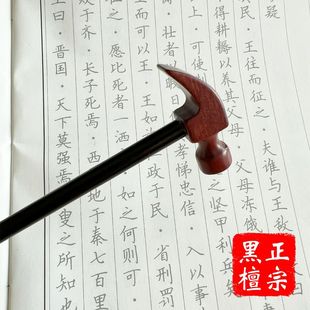 疑
王往而征之·夫谁与王敌
得耕耨以养其父母·父母冻饿
上·可使制 之坚甲利兵矣
壮者以暇日 孝悌忠信·入以事
里而可以王·王如 政于民·省刑罚
之·愿比死者一洒 如之何则可·
败于齐·长子死焉·西 地于秦七百里
曰·晋国·天下莫强焉·叟之所知也
正宗
黑檀